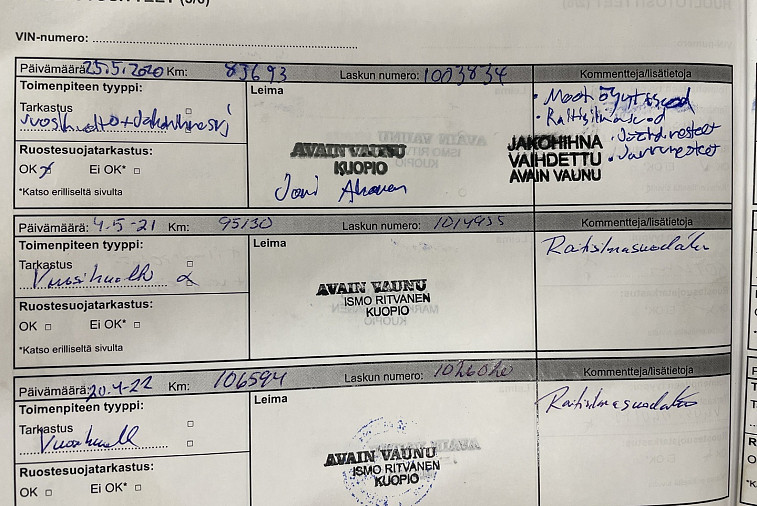 VIN-numero:
Päivämäärä: 25.5.2020 Km: 83693 Laskun numero: 1003834 Kommentteja/lisätietoja
Toimenpiteen tyyppi: Leima
Tarkastus
Vuosihuolto + Jakohihnasrj
Ruostesuojatarkastus:
OK Ei OK*
*Katso erilliseltä sivulta
AVAIN VAUNU
KUOPIO
Joni Ahonen
• Moottoriöljyt
• Raitisilma
JAKOHIHNA
VAIHDETTU
AVAIN VAUNU
• Jäähd.nesteet
• Jarrunesteet
Päivämäärä: 4-5-21 Km: 95130 Laskun numero: 1014955 Kommentteja/lisätietoja
Toimenpiteen tyyppi: Leima
Tarkastus
Vuosihuolto
Ruostesuojatarkastus:
OK Ei OK*
*Katso erilliseltä sivulta
AVAIN VAUNU
ISMO RITVANEN
KUOPIO
Raitisilmasuodatin
Päivämäärä: 20.4-22 Km: 106594 Laskun numero: 1026020 Kommentteja/lisätietoja
Toimenpiteen tyyppi: Leima
Tarkastus
Vuosihuolto
Ruostesuojatarkastus:
OK Ei OK*
AVAIN VAUNU
ISMO RITVANEN
KUOPIO
Raitisilmasuodatin